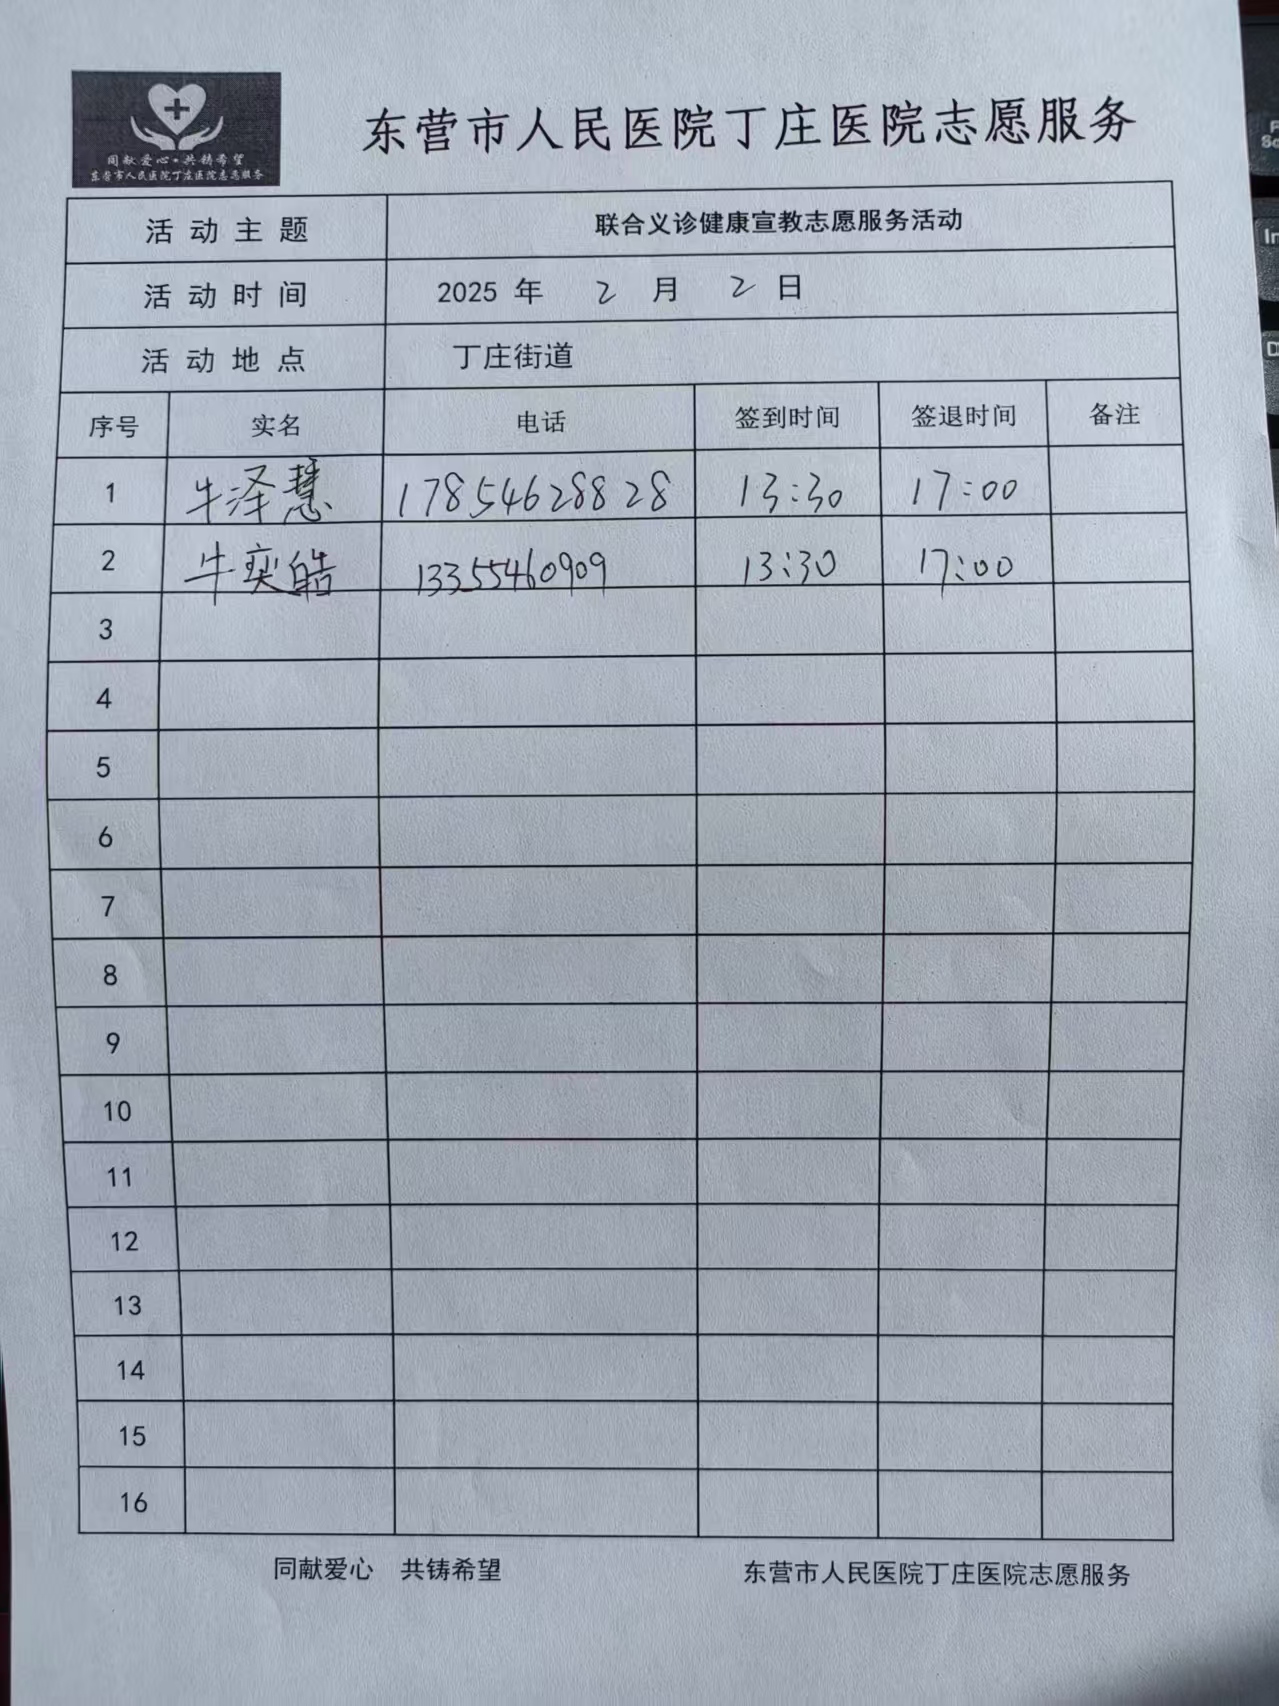 同献爱心·共铸希望
东营市人民医院丁庄医院志愿服务
东营市人民医院丁庄医院志愿服务
活动主题 联合义诊健康宣教志愿服务活动
活动时间 2025 年 2 月 2 日
活动地点 丁庄街道
序号 实名 电话 签到时间 签退时间 备注
1 牛泽慧 17854628828 13:30 17:00
2 牛奕皓 13355460909 13:30 17:00
3
4
5
6
7
8
9
10
11
12
13
14
15
16
同献爱心 共铸希望 东营市人民医院丁庄医院志愿服务